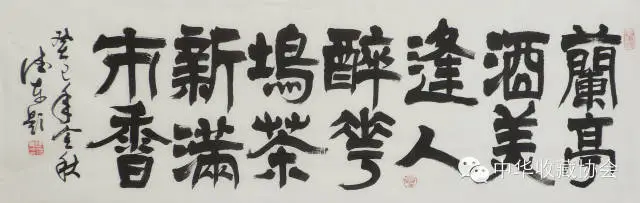 蘭亭
酒美
逢人
醉花
塢茶
新滿
市香
癸巳年宜秋
德東題
中华收藏协会